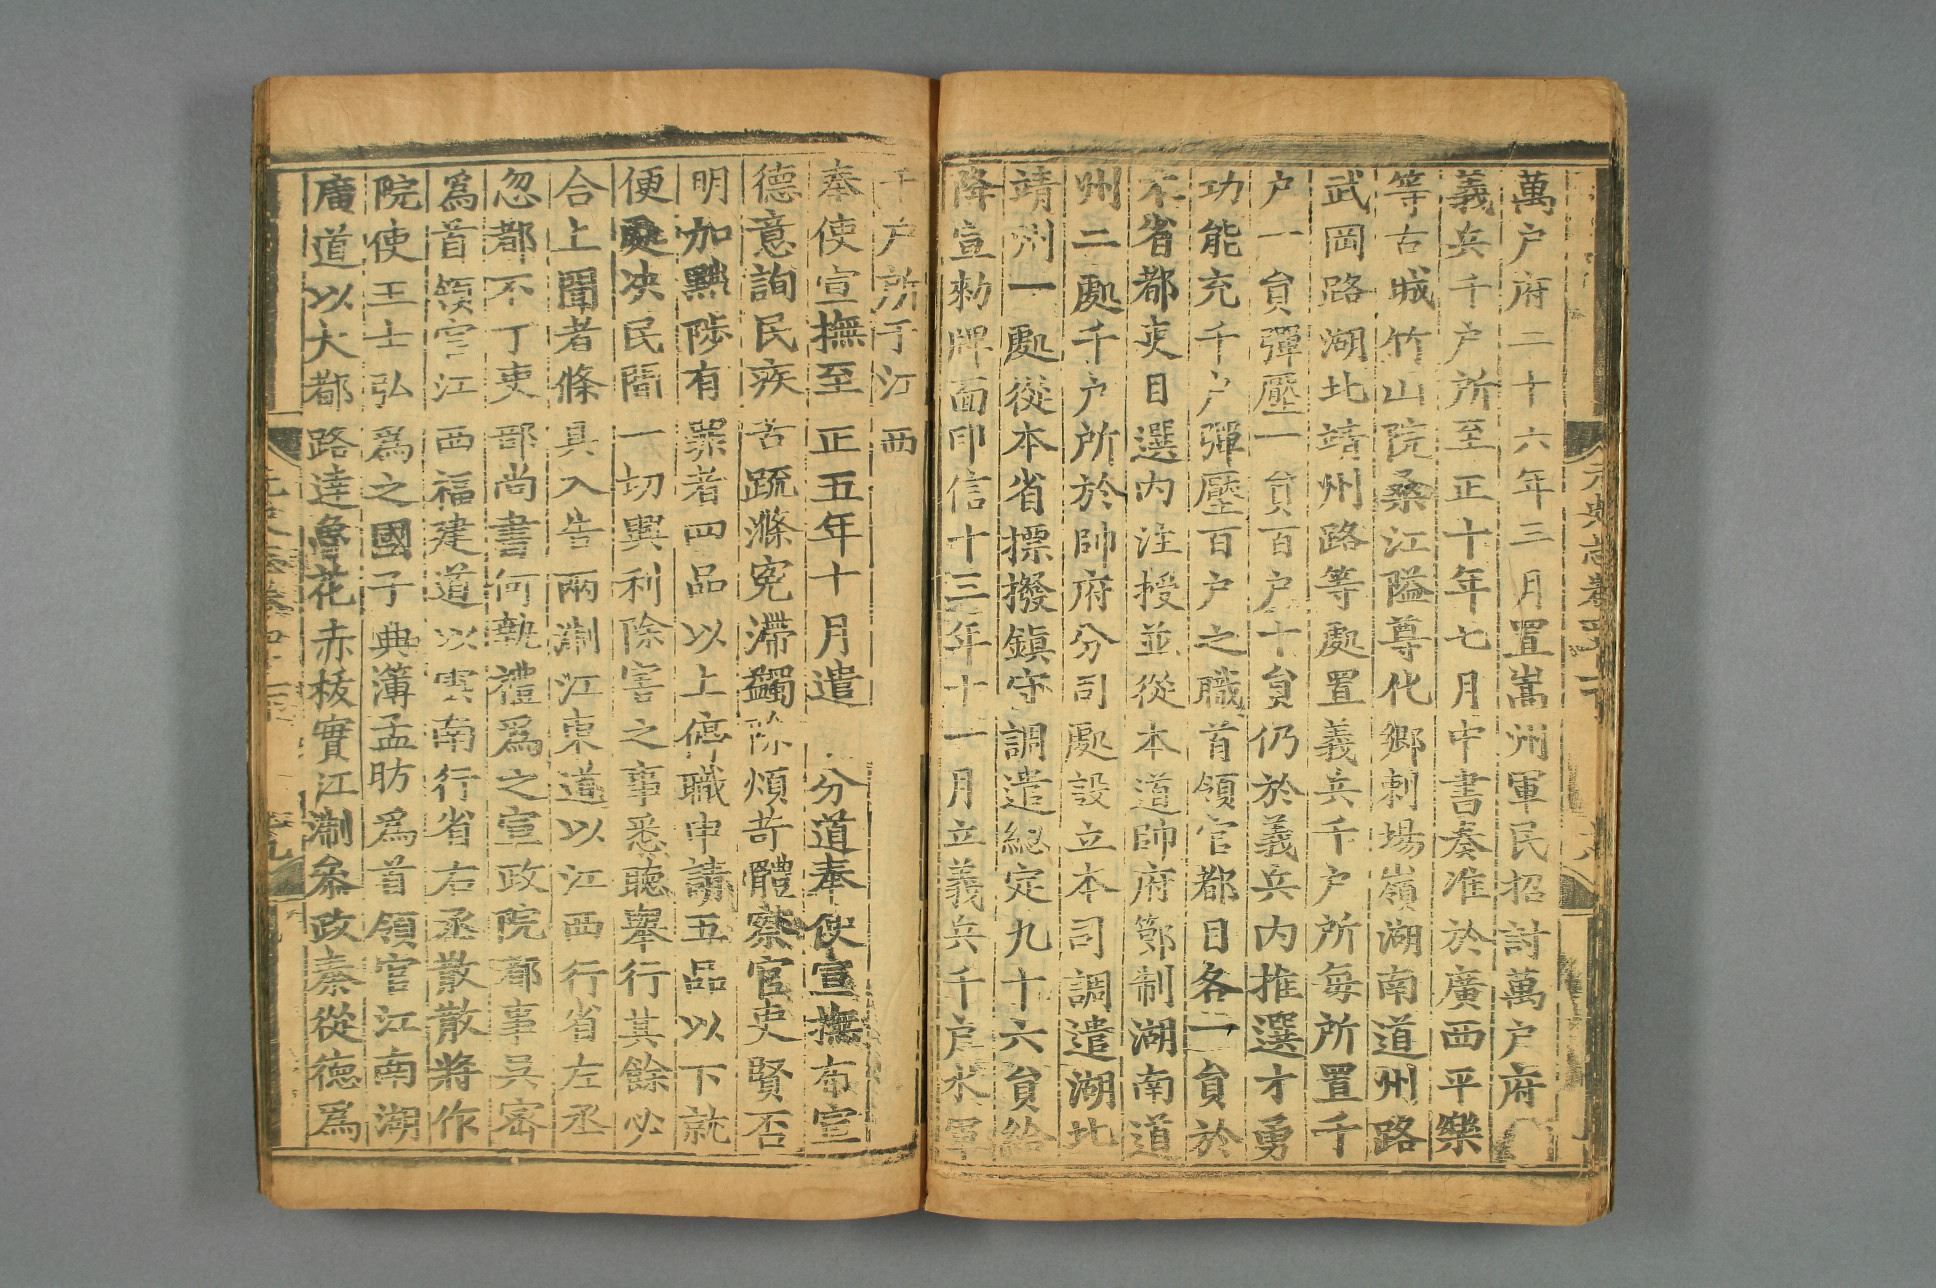 元史志卷四十一下
萬户府二十六年三月置嵩州軍民招討萬户府
義兵千户所至正十年七月中書奏准於廣西平樂
等古城竹山院桑江隘尊化鄉刺場嶺湖南道州路
武岡路湖北靖州路等處置義兵千户所每所置千
户一員彈壓一員百户十員仍於義兵内推選才勇
功能充千户彈壓百户之職首領官都目各一員於
本省都吏目選内注授並從本道帥府節制湖南道
州二處千户所於帥府分司處設立本司調遣湖北
靖州一處從本省摽撥鎮守調遣總定九十六員給
降宣勑牌面印信十三年十一月立義兵千户水軍
千户所于江西
奉使宣撫至正五年十月遣 分道奉使宣撫布宣
德意詢民疾苦疏滌寃滯蠲除煩苛體察官吏賢否
明加黜陟有罪者四品以上停職申請五品以下就
便處决民間一切興利除害之事悉聽舉行其餘必
合上聞者條具入告兩淛江東道以江西行省左丞
忽都不丁吏部尚書何執禮爲之宣政院都事吳密
爲首領官江西福建道以雲南行省右丞散散將作
院使王士弘爲之國子典簿孟昉爲首領官江南湖
廣道以大都路達魯花赤拔實江淛叅政秦從德爲